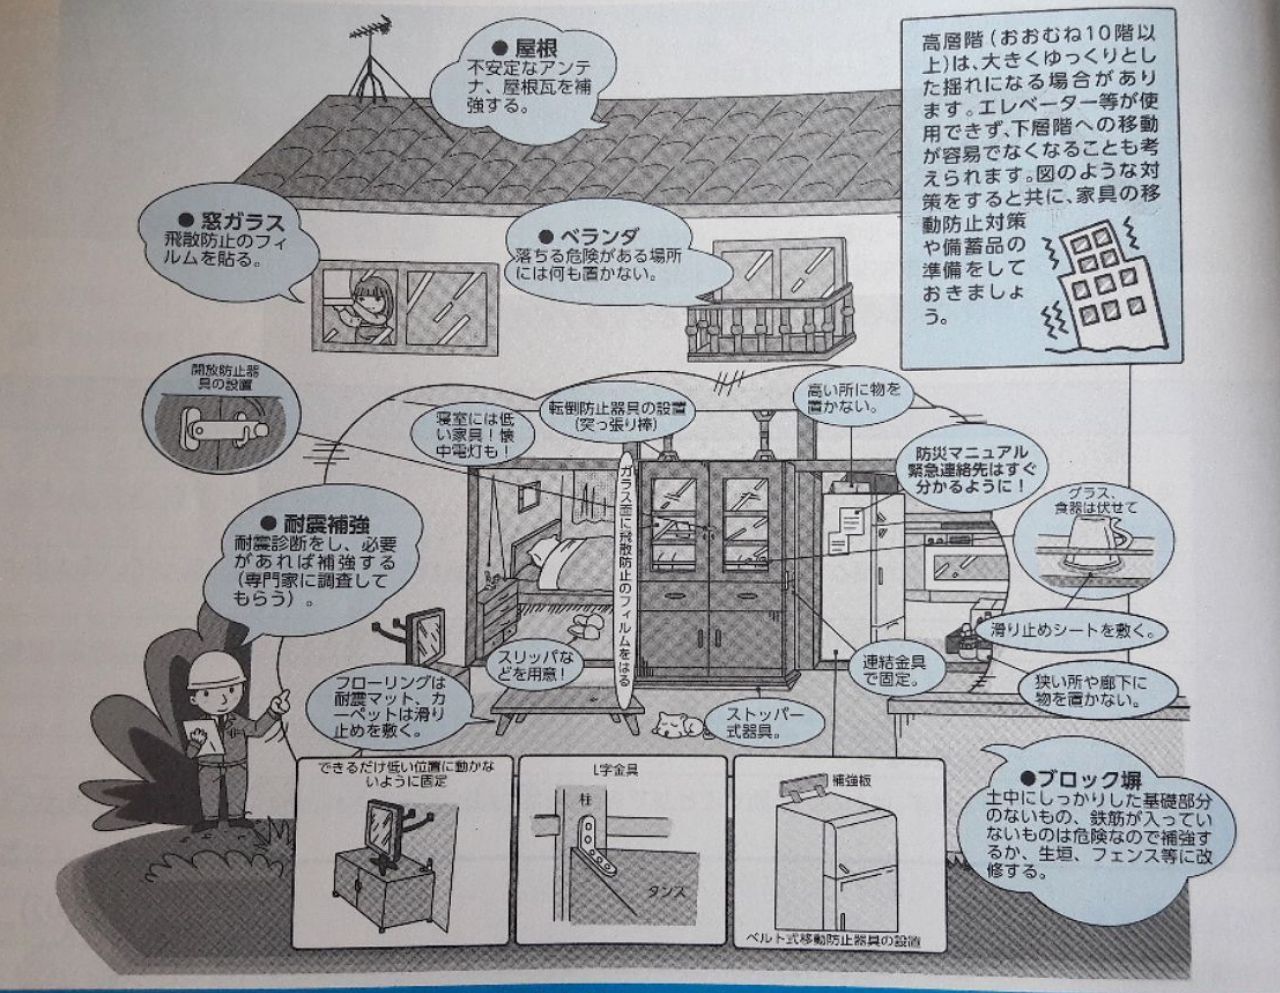 ● 屋根
不安定なアンテ
ナ、屋根瓦を補
強する。
高層階（おおむね10階以
上）は、大きくゆっくりとし
た揺れになる場合があり
ます。エレベーター等が使
用できず、下層階への移動
が容易でなくなることも考
えられます。図のような対
策をすると共に、家具の移
動防止対策
や備蓄品の
準備をして
おきましょ
う。
● 窓ガラス
飛散防止のフィ
ルムを貼る。
● ベランダ
落ちる危険がある場所
には何も置かない。
開放防止器
具の設置
寝室には低
い家具！懐
中電灯も！
転倒防止器具の設置
（突っ張り棒）
高い所に物を
置かない。
防災マニュアル
緊急連絡先はすぐ
分かるように！
グラス、
食器は伏せて
ガラス面に飛散防止のフィルムをはる
● 耐震補強
耐震診断をし、必要
があれば補強する
（専門家に調査して
もらう）。
滑り止めシートを敷く。
スリッパな
どを用意！
連結金具
で固定。
狭い所や廊下に
物を置かない。
フローリングは
耐震マット、カ
ーペットは滑り
止めを敷く。
ストッパー
式器具。
できるだけ低い位置に動かな
いように固定
L字金具
柱
タンス
補強板
ベルト式移動防止器具の設置
●ブロック塀
土中にしっかりした基礎部分
のないもの、鉄筋が入ってい
ないものは危険なので補強す
るか、生垣、フェンス等に改
修する。